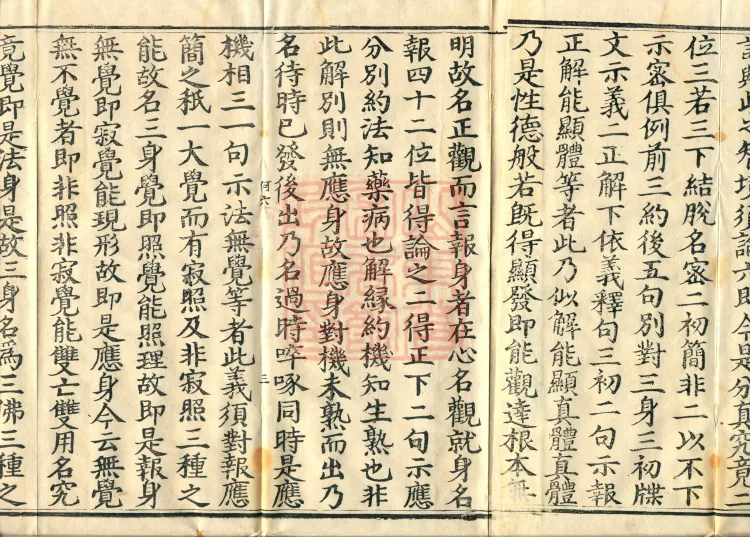 位三若三下結脫名密二初簡非二以不下
示密俱例前三約後五句別對三身三初牒
文示義二正解下依義釋句三初二句示報
正解能顯體等者此乃似解能顯真體真體
乃是性德般若既得顯發即能觀達根本無
明故名正觀而言報身者在心名觀就身名
報四十二位皆得論之二得正下二句示應
分別約法知藥病也解緣約機知生熟也非
此解別則無應身故應身對機未熟而出乃
名待時已發後出乃名過時啐啄同時是應
何六
三
機相三一句示法無覺等者此義須對報應
簡之秖一大覺而有寂照及非寂照三種之
能故名三身覺即照覺能照理故即是報身
無覺即寂覺能現形故即是應身今云無覺
無不覺者即非照非寂覺能雙亡雙用名究
竟覺即是法身是故三身名爲三佛三種之